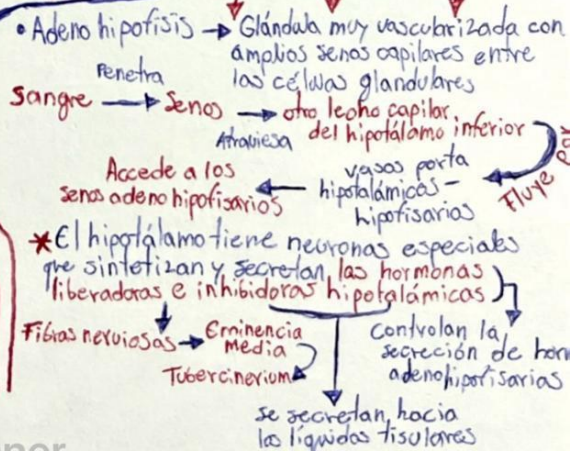 • Adeno hipofisis → Glándula muy vascubrizada con
amplios senos capilares entre
las células glandulares
Penetra
Sangre → Senos → otro lecho capilar
del hipotálamo inferior
Atraviesa
Fluye por
vasos porta
hipotalámicos-
hipofisarios
Accede a los
senos adenohipofisarios
* El hipotálamo tiene neuronas especiales
que sintetizan y secretan las hormonas
liberadoras e inhibidoras hipotalámicas
Fibras nerviosas → Eminencia
media
Tubercinerium
Controlan la
secreción de hor
adenohipofisarias
se secretan hacia
los líquidos tisulares